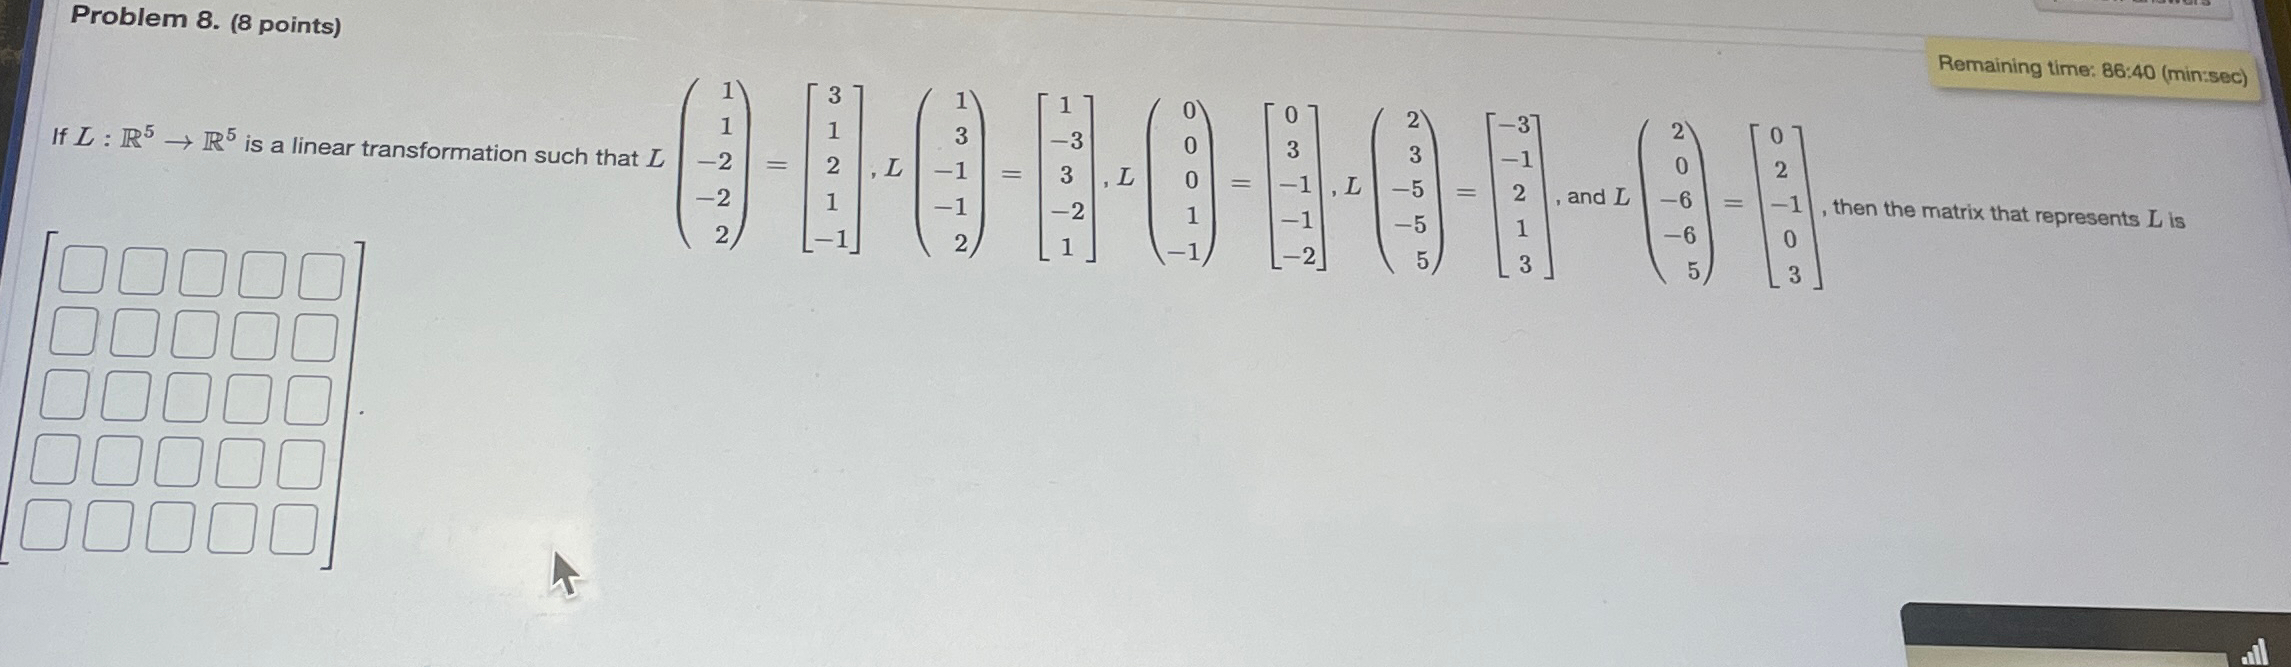 Problem 8. (8 points)
Remaining time: 86:40 (min:sec)
If L : ℝ⁵ → ℝ⁵ is a linear transformation such that L (1 1 −2 −2 2) = [3 1 2 1 −1], L (1 3 −1 −1 2) = [1 −3 3 −2 1], L (0 0 0 1 −1) = [0 3 −1 −1 −2], L (2 3 −5 −5 5) = [−3 −1 2 1 3], and L (2 0 −6 −6 5) = [0 2 −1 0 3], then the matrix that represents L is
.